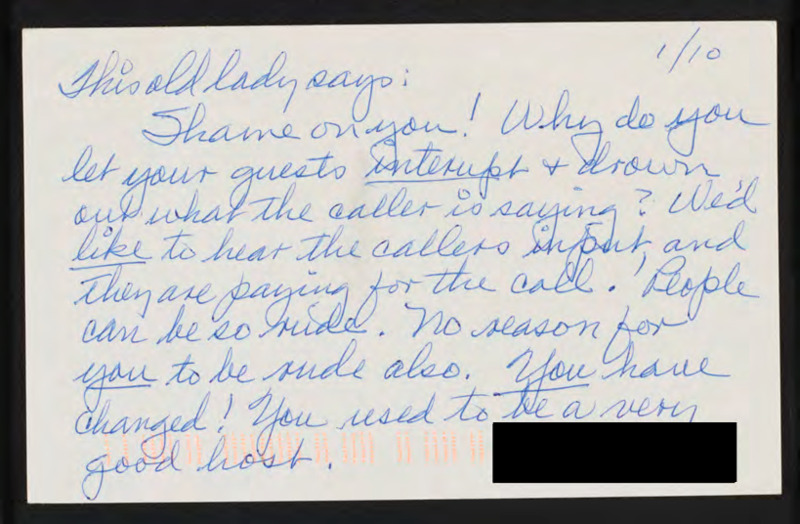 1/10
This old lady says:
Shame on you! Why do you
let your guests interupt + drown
out what the caller is saying? We'd
like to hear the callers input, and
they are paying for the call. People
can be so rude. No reason for
you to be rude also. You have
changed! You used to be a very
good host.